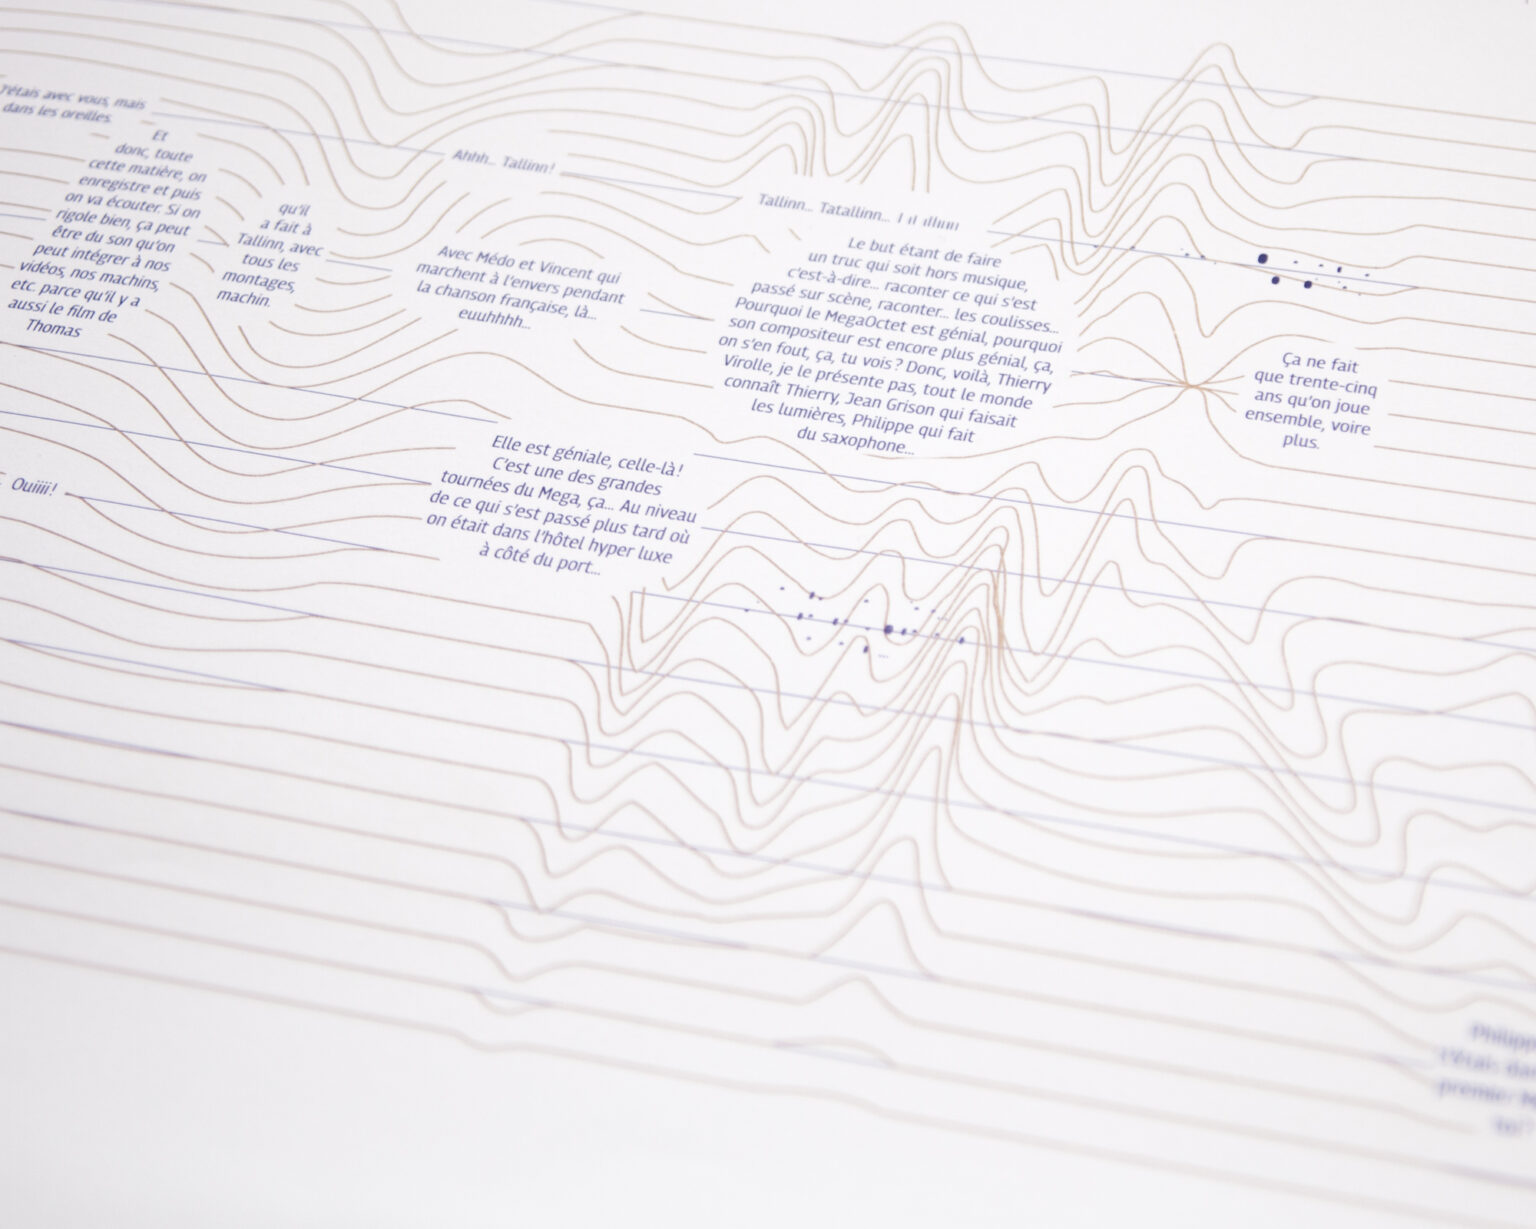 J'étais avec vous, mais
dans les oreilles.
Et
donc, toute
cette matière, on
enregistre et puis
on va écouter. Si on
rigole bien, ça peut
être du son qu'on
peut intégrer à nos
vidéos, nos machins,
etc. parce qu'il y a
aussi le film de
Thomas
qu'il
a fait à
Tallinn, avec
tous les
montages,
machin.
Ahhh... Tallinn!
Avec Médo et Vincent qui
marchent à l'envers pendant
la chanson française, là...
euuhhhh...
Tallinn... Tatallinn...
Le but étant de faire
un truc qui soit hors musique,
c'est-à-dire... raconter ce qui s'est
passé sur scène, raconter... les coulisses...
Pourquoi le MegaOctet est génial, pourquoi
son compositeur est encore plus génial, ça,
on s'en fout, ça, tu vois? Donc, voilà, Thierry
Virolle, je le présente pas, tout le monde
connaît Thierry, Jean Grison qui faisait
les lumières, Philippe qui fait
du saxophone...
Ça ne fait
que trente-cinq
ans qu'on joue
ensemble, voire
plus.
Elle est géniale, celle-là!
C'est une des grandes
tournées du Mega, ça... Au niveau
de ce qui s'est passé plus tard où
on était dans l'hôtel hyper luxe
à côté du port...
Ouiiii!
Philippe
j'étais dan
premier M
toi?